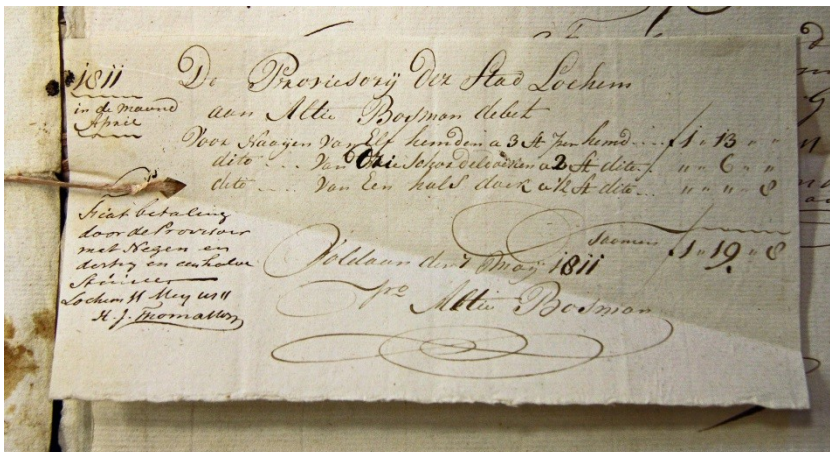 1811
in de maand
April
De Proviesorij der Stad Lochem
aan Altie Bosman debet
Voor Naaijen van Elf hemden a 3 St per hemd f 1 " 13 " "
dito van Drie a 2 St dito " " 6 " "
dito van Een hals doek a ½ St dito " " " " 8
Saamen f 1 " 19 " 8
Fiat betaling
door de Provisoir
met Negen en
dertig en een halve
Stuiver
Lochem 11 Mey 1811
H. J. Thomasson
Voldaan den 7 Maij 1811
pro Altie Bosman